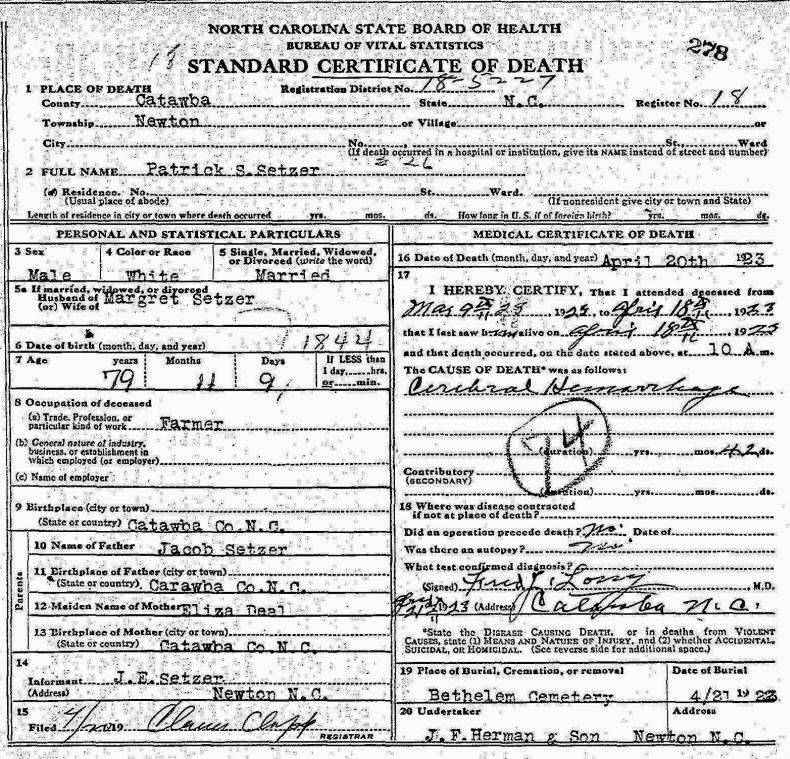 NORTH CAROLINA STATE BOARD OF HEALTH
BUREAU OF VITAL STATISTICS
278
STANDARD CERTIFICATE OF DEATH
1 PLACE OF DEATH Registration District No. 18-5227
County Catawba State N.C. Register No. 18
Township Newton or Village or
City No. St., Ward
(If death occurred in a hospital or institution, give its NAME instead of street and number)
# 26
2 FULL NAME Patrick S. Setzer
(a) Residence. No. St. Ward.
(Usual place of abode) (If nonresident give city or town and State)
Length of residence in city or town where death occurred yrs. mos. ds. How long in U. S. if of foreign birth? yrs. mos. ds.
PERSONAL AND STATISTICAL PARTICULARS
3 Sex 4 Color or Race 5 Single, Married, Widowed, or Divorced (write the word)
Male White Married
5a If married, widowed, or divorced
Husband of Margret Setzer
(or) Wife of
6 Date of birth (month, day, and year) 1844
7 Age years Months Days If LESS than
1 day, hrs.
79 11 9 or min.
8 Occupation of deceased
(a) Trade, Profession, or
particular kind of work Farmer
(b) General nature of industry,
business, or establishment in
which employed (or employer)
(c) Name of employer
9 Birthplace (city or town)
(State or country) Catawba Co.N.C.
Parents
10 Name of Father Jacob Setzer
11 Birthplace of Father (city or town)
(State or country) Carawba Co.N.C.
12 Maiden Name of Mother Eliza Deal
13 Birthplace of Mother (city or town)
(State or country) Catawba Co.N.C.
14
Informant J.E.Setzer
(Address) Newton N.C.
15
Filed 19
REGISTRAR
MEDICAL CERTIFICATE OF DEATH
16 Date of Death (month, day, and year) April 20th 1923
17
I HEREBY CERTIFY, That I attended deceased from
1923, to April 18 1923
that I last saw him alive on April 18 1923
and that death occurred, on the date stated above, at 10 A.m.
The CAUSE OF DEATH* was as follows:
Cerebral Hemorrhage
74
(duration) yrs. mos. 42 ds.
Contributory
(SECONDARY)
(duration) yrs. mos. ds.
18 Where was disease contracted
if not at place of death?
Did an operation precede death? No Date of
Was there an autopsy? No
What test confirmed diagnosis?
(Signed) M.D.
1923 (Address) Catawba N.C.
*State the DISEASE CAUSING DEATH, or in deaths from VIOLENT
CAUSES, state (1) MEANS AND NATURE OF INJURY, and (2) whether ACCIDENTAL,
SUICIDAL, OR HOMICIDAL. (See reverse side for additional space.)
19 Place of Burial, Cremation, or removal Date of Burial
Bethelem Cemetery 4/21 1923
20 Undertaker Address
J.F.Herman & Son Newton N.C.